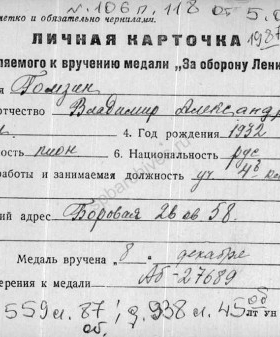 № 106 п. 118 от 5.0
етко и обязательно чернилами.
ЛИЧНАЯ КАРТОЧКА 1987
ляемого к вручению медали „За оборону Лени
я Гомзин
отчество Владимир Александр
4. Год рождения 1932
ность пион 6. Национальность рус
аботы и занимаемая должность уч. 4
ий адрес Боровая 26 кв 58.
Медаль вручена „ 8 „ декабря
ерения к медали Аб-27689
559 л. 87 об. 938 л. 45 об